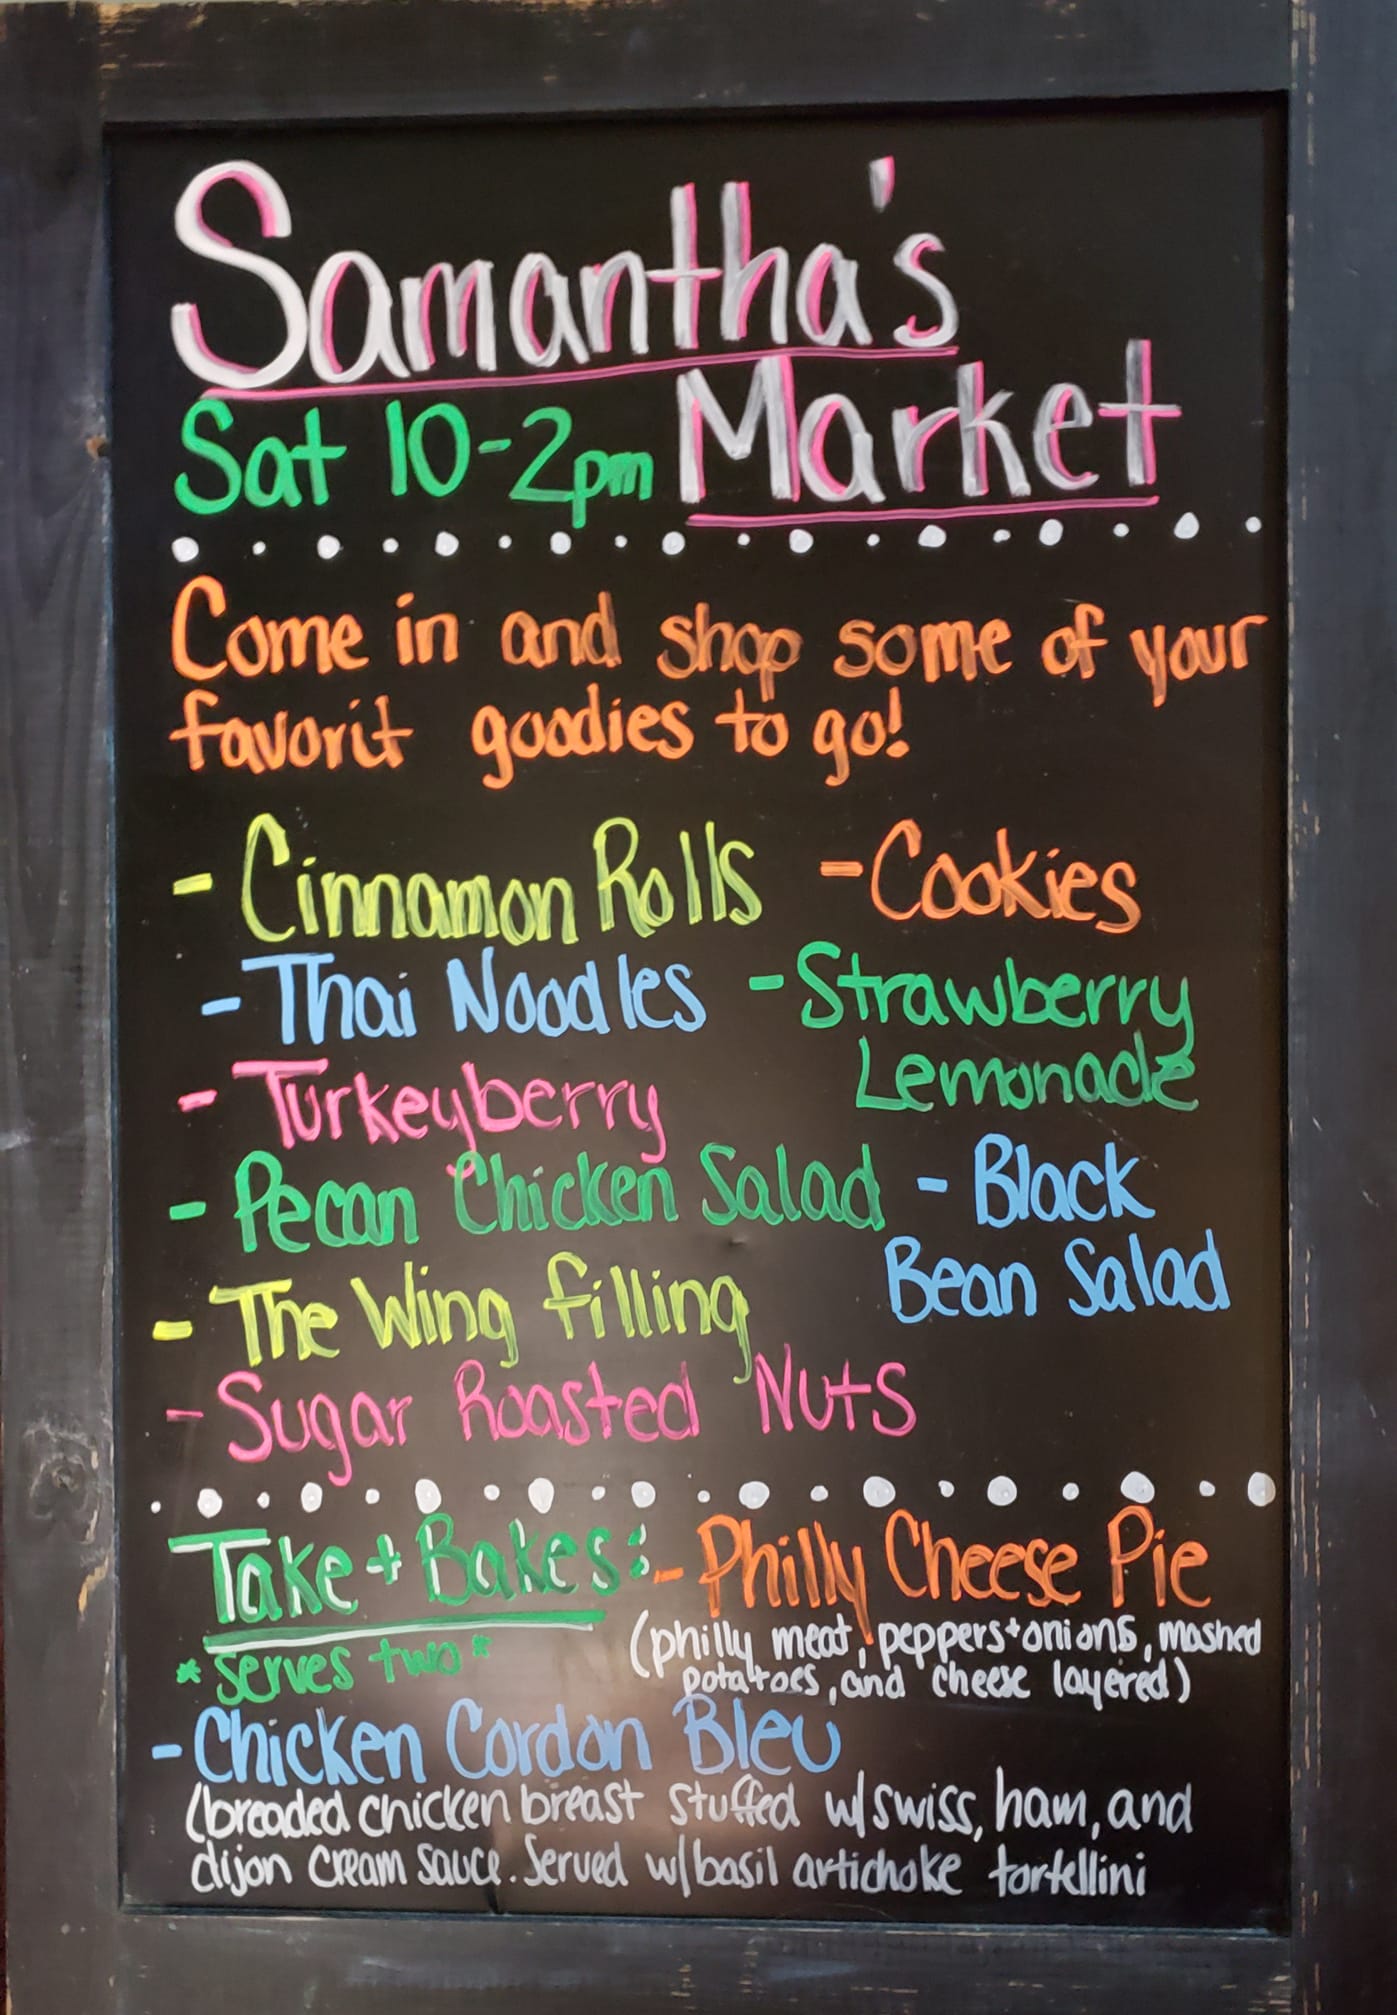 Samantha's
Sat 10-2pm Market
Come in and shop some of your
favorit goodies to go!
- Cinnamon Rolls - Cookies
- Thai Noodles - Strawberry
Lemonade
- Turkeyberry
- Pecan Chicken Salad - Black
Bean Salad
- The Wing filling
- Sugar Roasted Nuts
Take + Bakes: - Philly Cheese Pie
*serves two* (philly meat, peppers + onions, mashed
potatoes, and cheese layered)
- Chicken Cordon Bleu
(breaded chicken breast stuffed w/ swiss, ham, and
dijon cream sauce. Served w/ basil artichoke tortellini